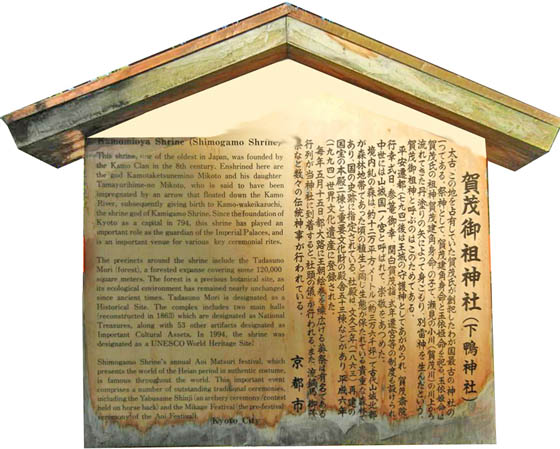 Kamomioya Shrine (Shimogamo Shrine)
This shrine, one of the oldest in Japan, was founded by
the Kamo Clan in the 8th century. Enshrined here are
the god Kamotaketsunemino Mikoto and his daughter
Tamayorihime-no Mikoto, who is said to have been
impregnated by an arrow that floated down the Kamo
River, subsequently giving birth to Kamo-wakeikazuchi,
the shrine god of Kamigamo Shrine. Since the foundation of
Kyoto as a capital in 794, this shrine has played an
important role as the guardian of the Imperial Palaces, and
is an important venue for various key ceremonial rites.
The precincts around the shrine include the Tadasuno
Mori (forest), a forested expanse covering some 120,000
square meters. The forest is a precious botanical site, as
its ecological environment has remained nearly unchanged
since ancient times. Tadasuno Mori is designated as a
Historical Site. The complex includes two main halls
(reconstructed in 1863) which are designated as National
Treasures, along with 53 other artifacts designated as
Important Cultural Assets. In 1994, the shrine was
designated as a UNESCO World Heritage Site.
Shimogamo Shrine's annual Aoi Matsuri festival, which
presents the world of the Heian period in authentic costume,
is famous throughout the world. This important event
comprises a number of outstanding traditional ceremonies,
including the Yabusame Shinji (an archery ceremony/contest
held on horse back) and the Mikage Festival (the pre-festival
ceremony of the Aoi Festival).
Kyoto City
賀茂御祖神社(下鴨神社)
太古、この地を占有していた賀茂氏が創祀したわが国最古の神社の
一つである。祭神として、賀茂建角身命と玉依姫命を祀る。玉依姫命
賀茂御祖神社と呼ぶのはこのためである。
が森林地帯であった頃の植生と同じ生態が保たれている貴重な森林で
あり、国の史跡に指定されている。
国宝の本殿二棟と重要文化財の殿舎五十三棟などがあり、平成六年
(一九九四)世界文化遺産に登録された。
毎年、五月十五日、都大路に王朝絵巻を繰広げる葵祭は有名である。
など数々の伝統神事が行われている。
京都市